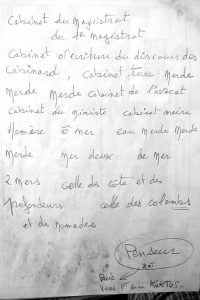 Cabinet du Magistrat
du magistrat
Cabinet d'écriture du discours des
cabinard, cabinet turc Merde
Merde Merde cabinet de l'avocat
cabinet du ministre cabinet noire
ô mer eau Merde Merde
Merde Mer deux de Mer
2 Mers celle des côte et des
profondeurs celle des colombs
et des nomades
Penseur
Paris